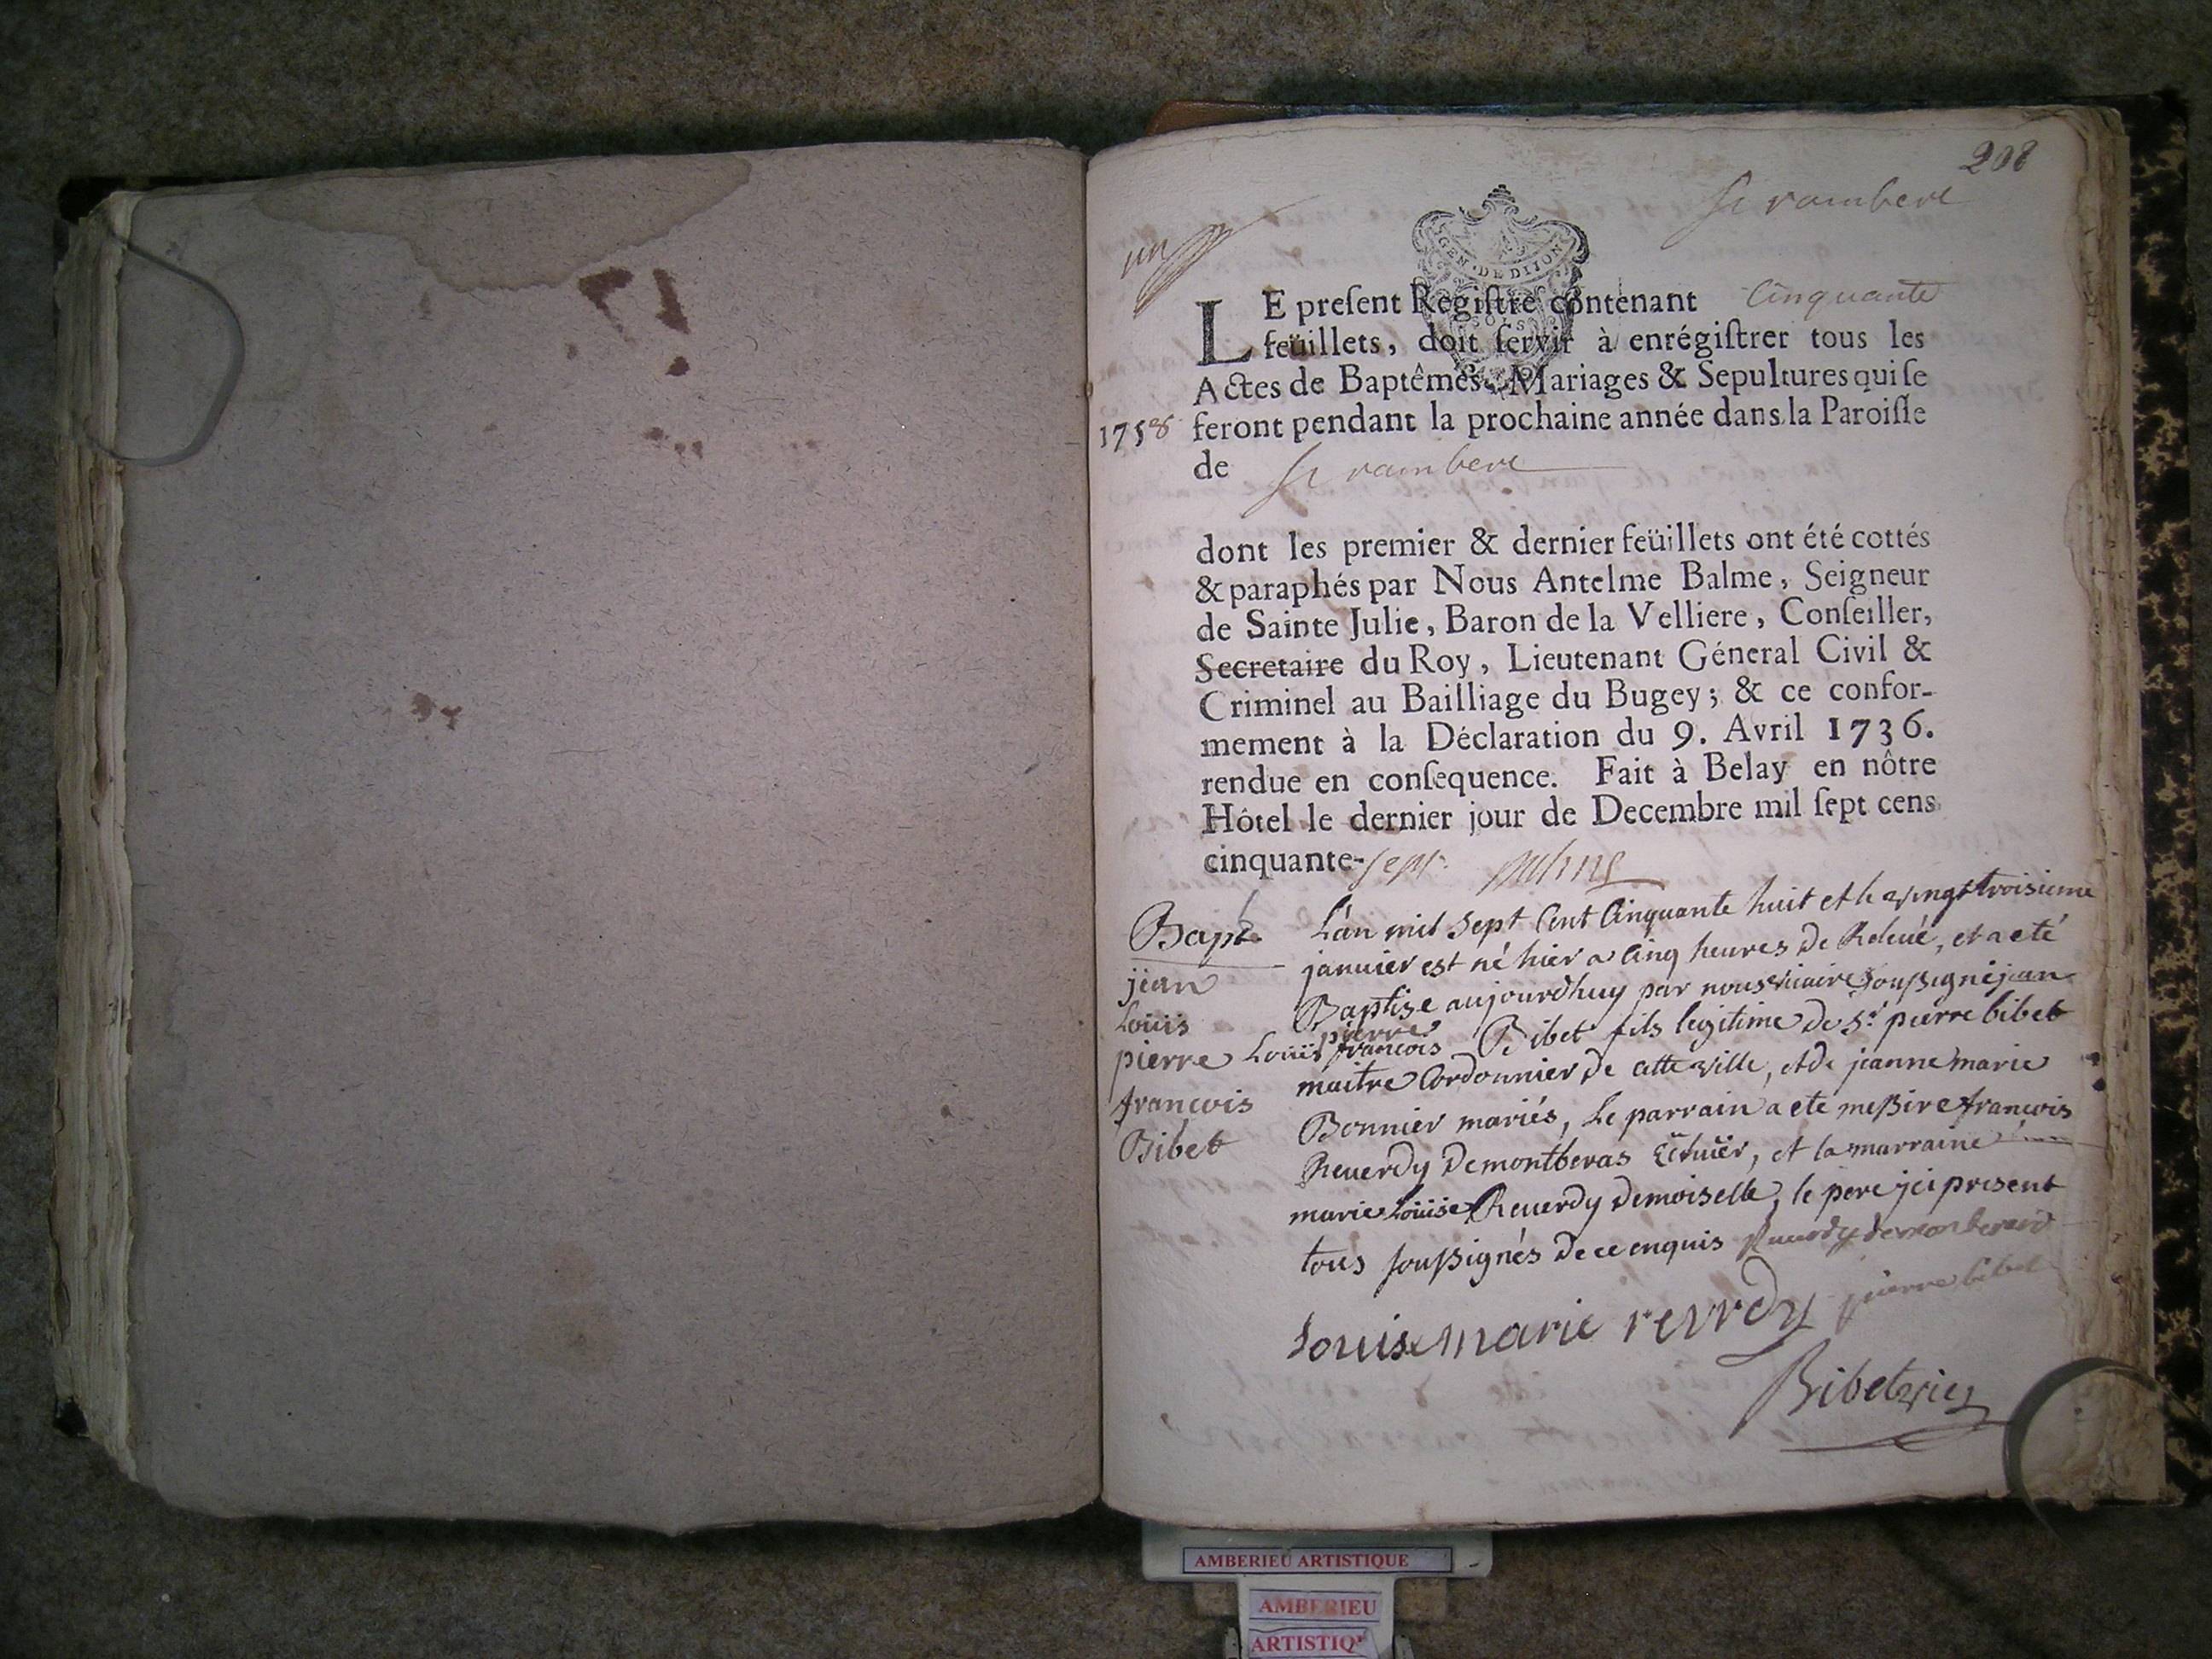 208
St rambert
un
GEN · DE DIJON
LE preſent Regiſtre contenant Cinquante
feüillets, doit ſervir à enrégiſtrer tous les
Actes de Baptêmes, Mariages & Sepultures qui ſe
1758 feront pendant la prochaine année dans la Paroiſſe
de St rambert
dont les premier & dernier feüillets ont été cottés
& paraphés par Nous Antelme Balme, Seigneur
de Sainte Julie, Baron de la Velliere, Conſeiller,
Secretaire du Roy, Lieutenant Géneral Civil &
Criminel au Bailliage du Bugey; & ce confor-
mement à la Déclaration du 9. Avril 1736.
rendue en conſequence. Fait à Belay en nôtre
Hôtel le dernier jour de Decembre mil ſept cens
cinquante-sept
Bapt.
jean
Loüis
pierre
françois
Bibet
L'an mil Sept Cent Cinquante huit et le vingt troisieme
januier est né hier a Cinq heures de Releué, et a eté
Baptisé aujourdhuy par nous vicaire soussigné jean
Loüis pierre françois Bibet fils legitime de Sr. pierre bibet
maitre Cordonnier de cette ville, et de jeanne marie
Bonnier mariés, Le parrain a eté messire françois
Reuerdy de montberas Ecuïer, et la marraine
marie Loüise Reuerdy demoiselle, le pere jci present
tous soussignés de ce enquis Reuerdy de montberas
Louise marie reverdy pierre bibet
Bibet vic
AMBERIEU ARTISTIQUE
AMBERIEU
ARTISTIQ